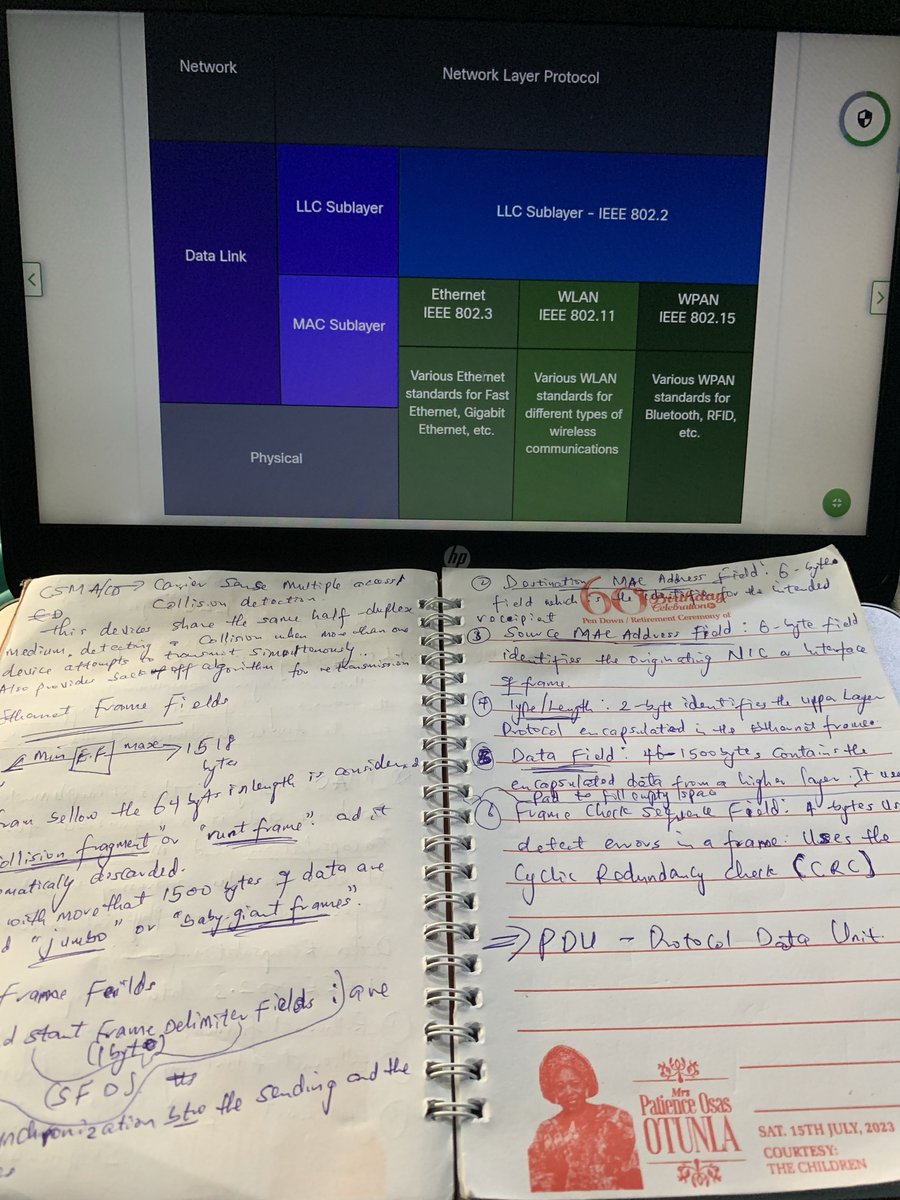 Network
Network Layer Protocol
Data Link
LLC Sublayer
LLC Sublayer - IEEE 802.2
MAC Sublayer
Ethernet
IEEE 802.3
WLAN
IEEE 802.11
WPAN
IEEE 802.15
Various Ethernet
standards for Fast
Ethernet, Gigabit
Ethernet, etc.
Various WLAN
standards for
different types of
wireless
communications
Various WPAN
standards for
Bluetooth, RFID,
etc.
Physical
hp
CSMA/CD → Carrier Sense Multiple access/
Collision detection.
this devices share the same half-duplex
medium, detecting a Collision when more than one
device attempts to transmit simultenously...
Also provides back off algorithm for retransmission
Ethernet Frame Fields
Min E.F max → 1518
bytes
the 64 bytes in length is considered
collision fragment" or "runt frame" ad it
discarded.
with more that 1500 bytes of data are
"jumbo" or "baby-giant frames".
Frame Feilds
start Frame Delimiter Fields :) are
(1byte)
(SFDS)
the sending and the
② Destination MAC Address Field: 6-bytes
field which is the for the intended
60 Birthday
Celebration
Pen Down / Retirement Ceremony of
③ Source MAC Address Field: 6-byte field
identifies the originating NIC or interface
of frame.
④ Type/Length: 2-byte identifies the upper Layer
Protocol encapsulated in the Ethernet frame
Data Field: 46-1500bytes, contains the
encapsulated data from a higher layer. It use
Pad to fill empty space
⑥ Frame Check Sequence Field: 4 bytes Us
detect errors in a frame. Uses the
Cyclic Redundancy Check (CRC)
⇒ PDU - Protocol Data Unit.
Mrs
Patience Osas
OTUNLA
SAT. 15TH JULY, 2023
COURTESY:
THE CHILDREN